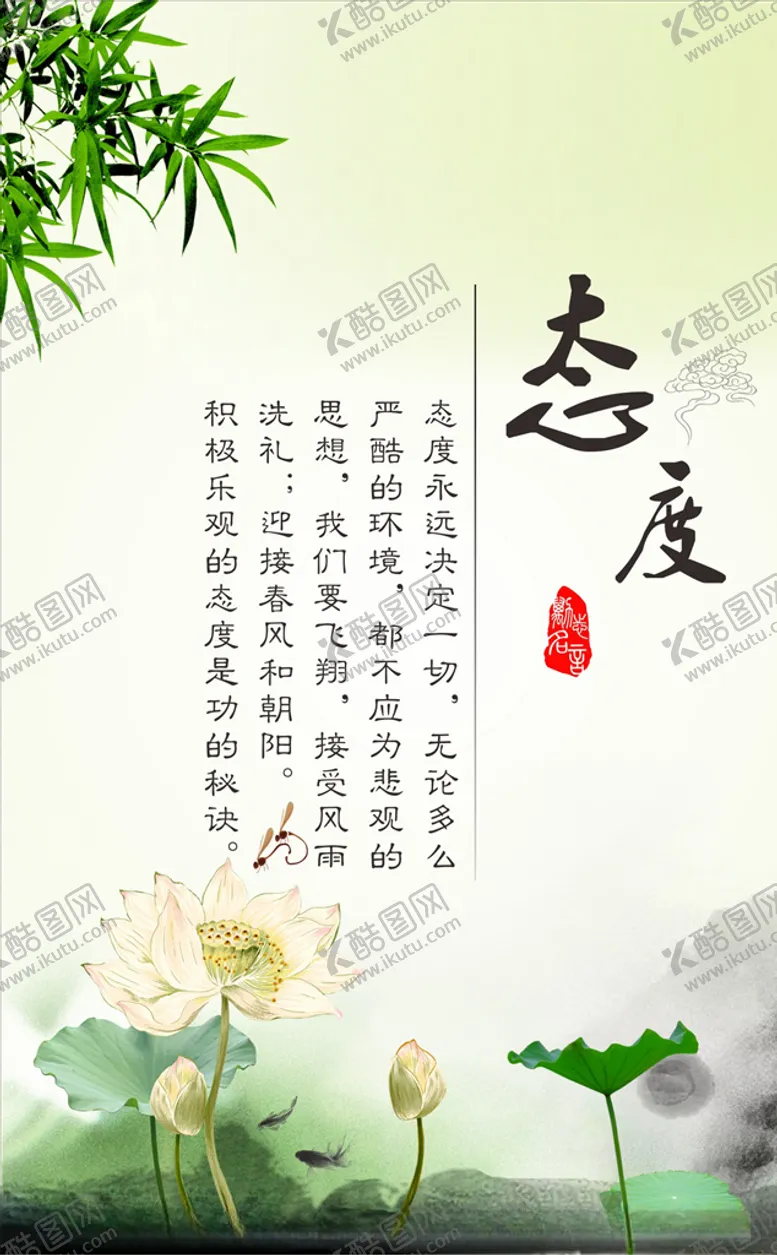 态度
勵志名言
态度永远决定一切，无论多么
严酷的环境，都不应为悲观的
思想，我们要飞翔，接受风雨
洗礼；迎接春风和朝阳。
积极乐观的态度是功的秘诀。
酷图网
www.ikutu.com